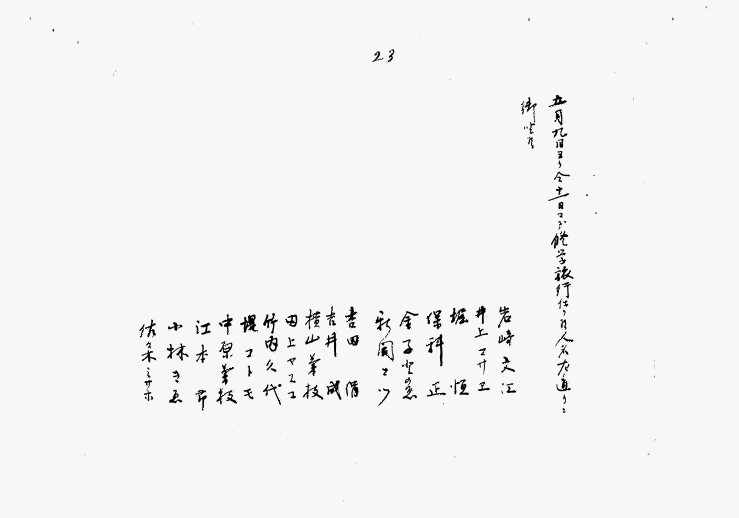 23
五月九日ヨリ仝十一日マデ修学旅行仕候人名左ノ通リニ
御座候
岩崎文江
井上マサエ
堀 恒
保科 正
金子
新関ミツ
吉田 清
吉井 成
横山兼枝
田上ヤスコ
竹内久代
堤コトモ
中原兼枝
江本
小林きゑ
佐々木ミサホ